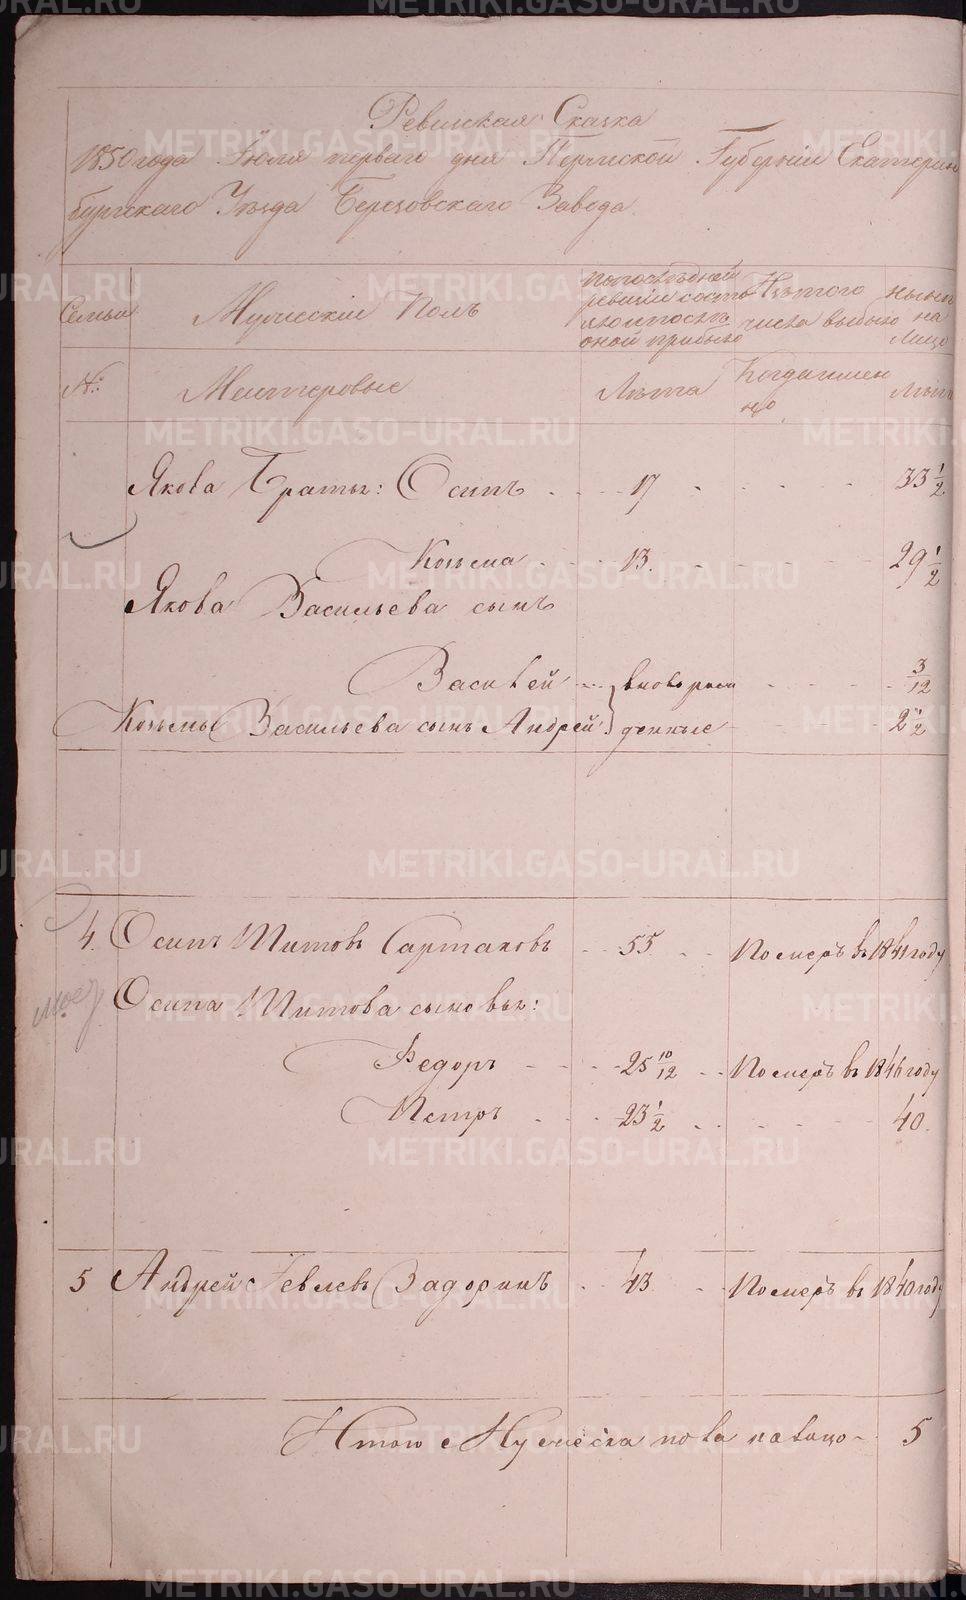 Ревизская Сказка
1850 года Июля перваго дня Пермской Губернии Екатерин
бургскаго Уезда Березовскаго Завода.
Семьи
Мужеский Полъ
По последней
ревизии состо
яло и после
оной прибыло
Изъ того
числа выбыло
ныне
на
лицо
№:
Мастеровые
Лета
Когда имен
но
Лета
Якова Браты: Осипъ 17 33 1/2
Козьма 13. 29 1/2
Якова Васильева сынъ
Василей вновь рож 3/12
Козьмы Васильева сынъ Андрей денные 2 1/2
4. Осипъ Титовъ Сартаковъ 55 Померъ въ 1841 году
Осипа Титова сыновья:
Федоръ 25 10/12 Померъ въ 1846 году
Петръ 23 1/2 40.
5 Андрей Задоринъ 43 Померъ въ 1840 году
Итого Мужеска пола на лицо 5
METRIKI.GASO-URAL.RU